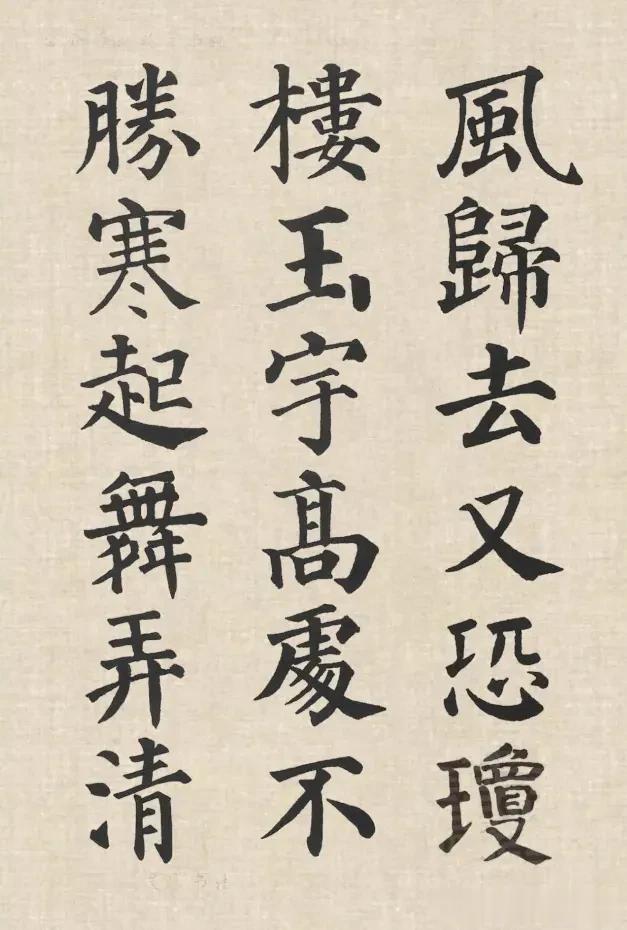 風歸去又恐瓊
樓玉宇高處不
勝寒起舞弄清